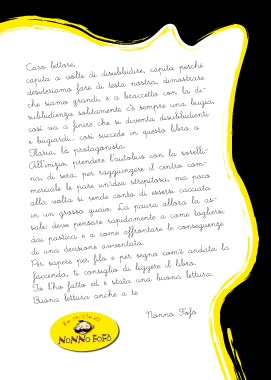 Caro lettore,
capita a volte di disubbidire, capita perché
desideriamo fare di testa nostra, dimostrare
che siamo grandi, e a braccetto con la di-
subbidienza solitamente c'è sempre una bugia,
così va a finire che si diventa disubbidienti
e bugiardi... così succede in questo libro a
Ilaria, la protagonista.
All'inizio, prendere l'autobus con la sorelli-
na, di sera, per raggiungere il centro com-
merciale le pare un'idea strepitosa, ma poco
alla volta si rende conto di essersi cacciata
in un grosso guaio. La paura allora la as-
sale: deve pensare rapidamente a come togliersi
dai pasticci e a come affrontare le conseguenze
di una decisione avventata.
Per sapere per filo e per segno com'è andata la
faccenda, ti consiglio di leggere il libro.
Io l'ho fatto ed è stata una buona lettura.
Buona lettura anche a te.
Nonno Fofò
NONNO FOFÒ